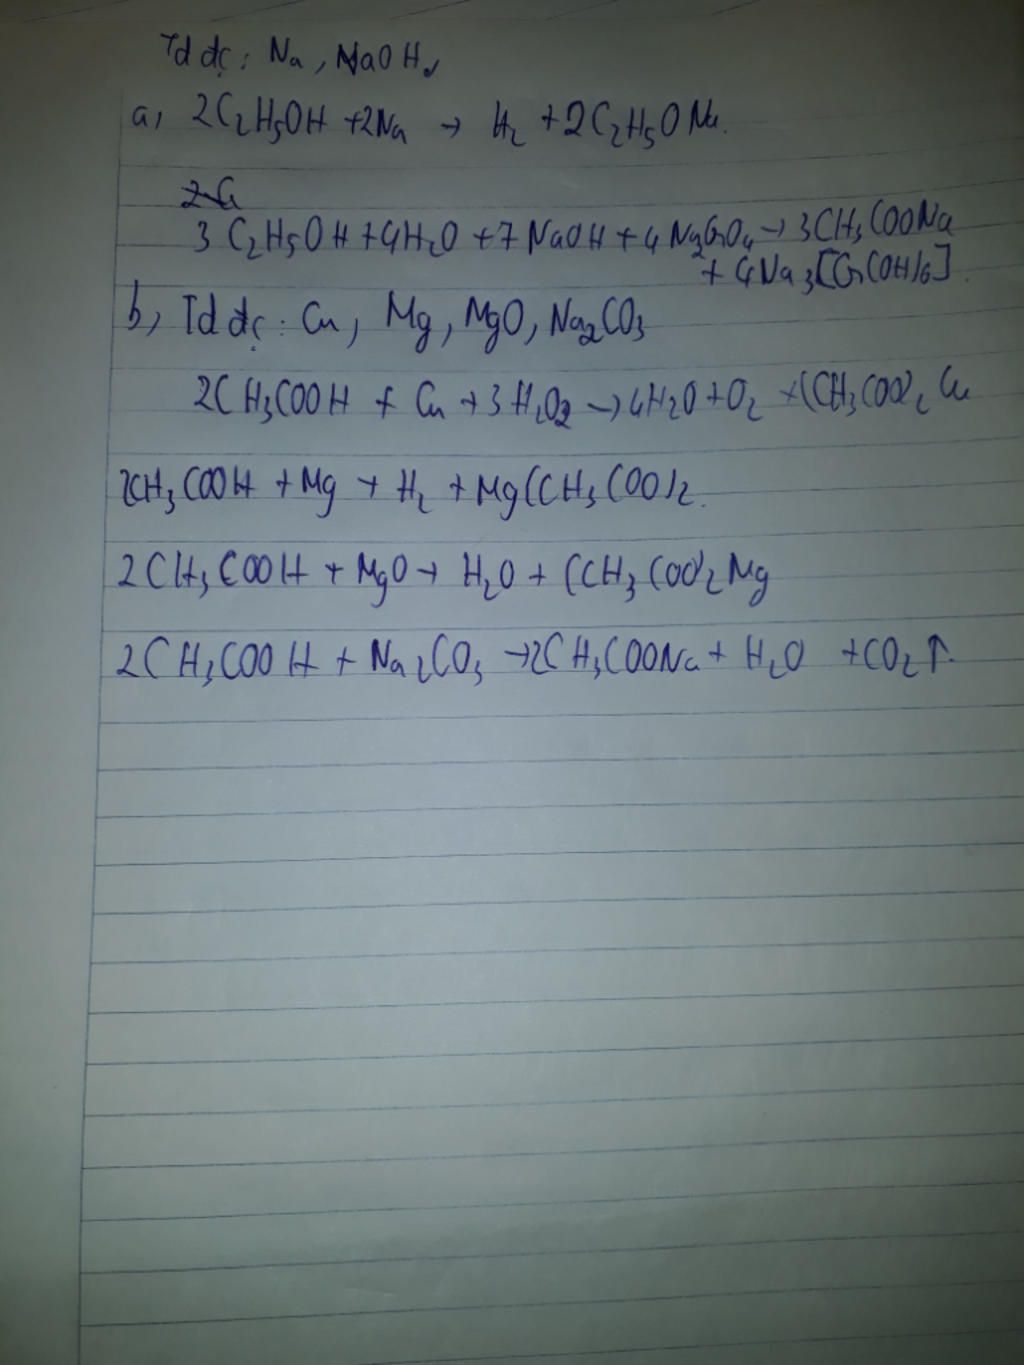 Td đc: Na, NaOH,
a, 2C₂H₅OH + 2Na → H₂ + 2C₂H₅ONa.
3 C₂H₅OH + 4H₂O + 7NaOH + 4Na₂CrO₄ → 3CH₃COONa
+ 4Na₃[Cr(OH)₆].
b, Td đc: Cu, Mg, MgO, Na₂CO₃
2CH₃COOH + Cu + 3H₂O₂ → 4H₂O + O₂ + (CH₃COO)₂Cu
2CH₃COOH + Mg → H₂ + Mg(CH₃COO)₂.
2CH₃COOH + MgO → H₂O + (CH₃COO)₂Mg
2CH₃COOH + Na₂CO₃ → 2CH₃COONa + H₂O + CO₂↑.